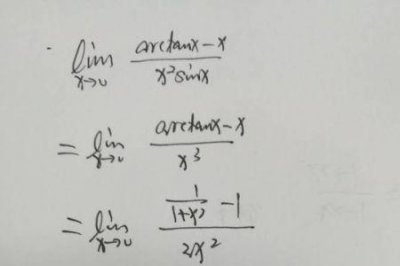 lim x→0 (arctanx - x)/(x² sinx)
= lim x→0 (arctanx - x)/x³
= lim x→0 (1/(1+x²) - 1)/(2x²)